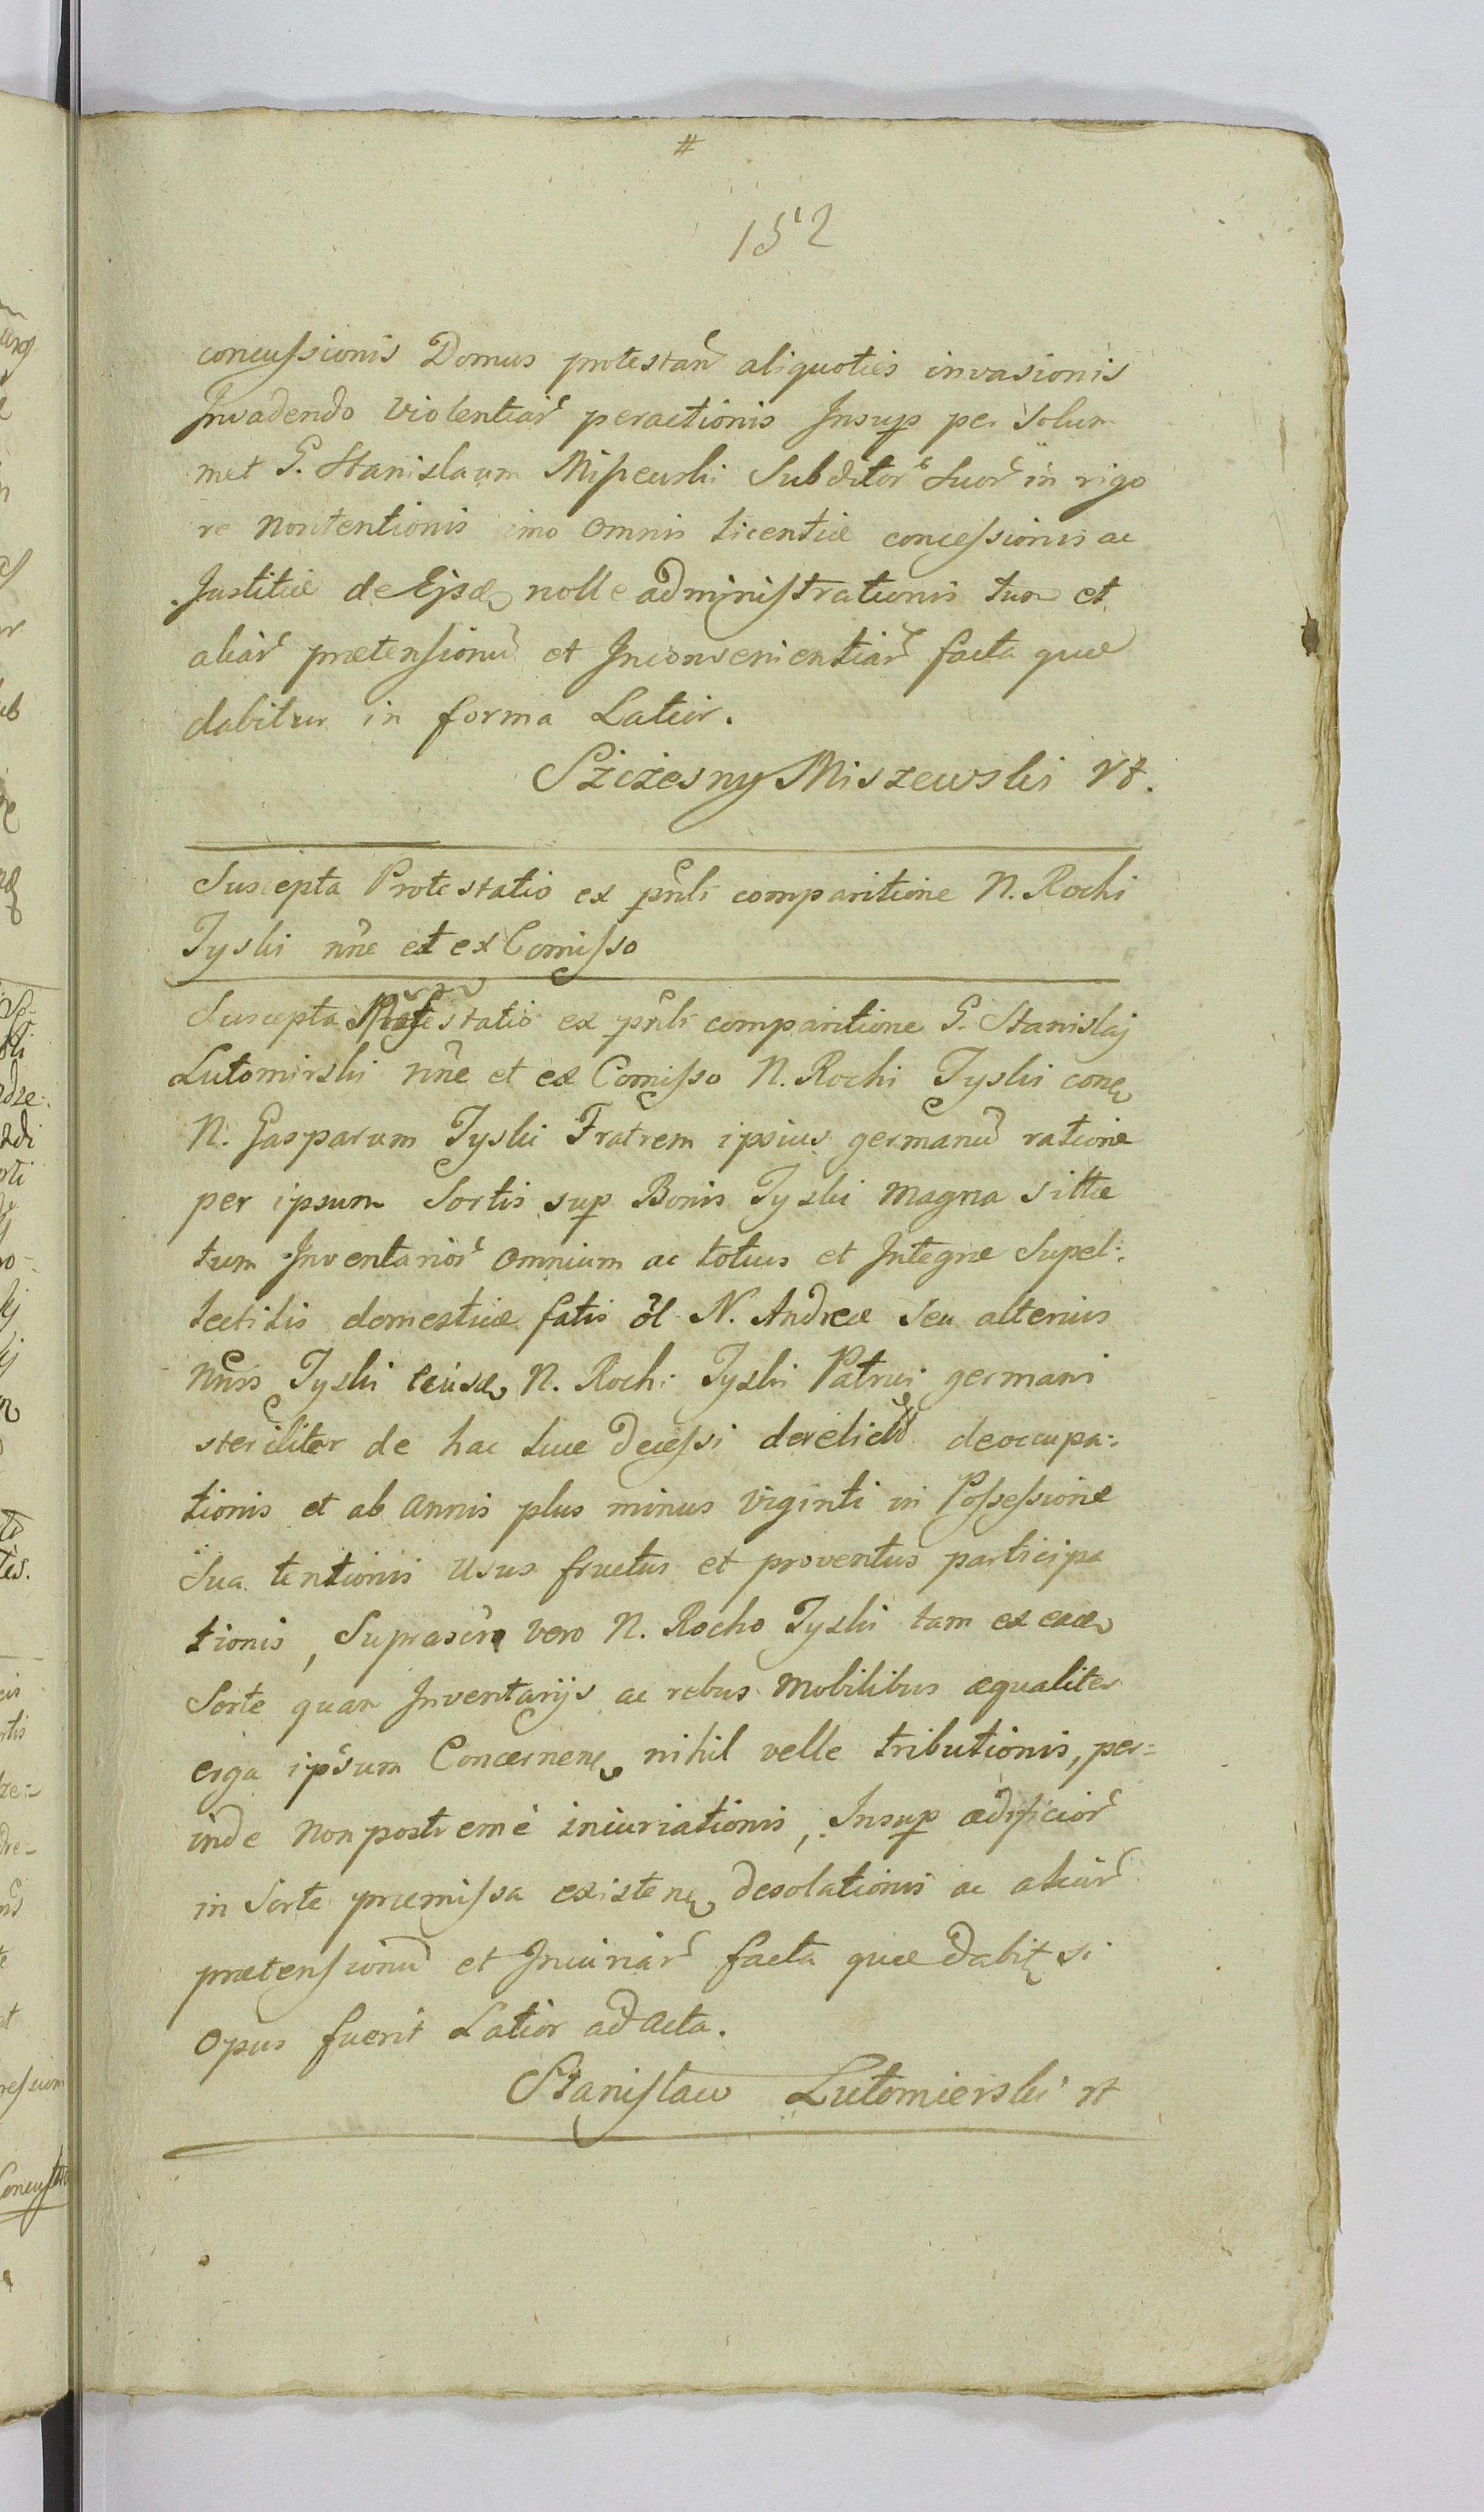 #
152
concussionis Domus protestan̄ aliquoties invasionis
Invadendo violentiar̄ peractionis Insup per solum
met G. Stanislaum Miszewski Subditor̄ suor̄ in rigo
re nontentionis imo omnis licentiæ concessionis ac
Justitiæ de Ejsd nolle administrationis tum et
aliar̄ prætensionū et Inconvenientiar̄ facta quæ
dabitur in forma Latior.
Szczesny Miszewski
Suscepta Protestatio ex pn̄li comparitione N. Rochi
Tyski nn̄e et ex Comisso
Suscepta Protestatio ex pn̄li comparitione G. Stanislaj
Lutomirski nn̄e et ex Comisso N. Rochi Tyski con
N. Gasparum Tyski Fratrem ipsius germanū ratione
per ipsum Sortis sup Bonis Tyski Magna sittæ
tum Inventarior̄ omnium ac totius et Integræ Supel:
lectilis domesticæ fatis ōl N. Andreæ seu alterius
nn̄is Tyski eiusd N. Rochi Tyski Patrui germani
steriliter de hac luce decessi derelictæ deoccupa:
tionis et ab annis plus minus viginti in Possessione
sua tentionis usus fructus et proventus participa
tionis, Suprascr̄o vero N. Rocho Tyski tam ex ead
Sorte quam Inventarijs ac rebus mobilibus æqualiter
erga ipsum Concernen nihil velle tributionis, per=
inde non postremè iniuriationis, Insup ædificior̄
in Sorte præmissa existen desolationis ac aliar̄
prætensionū et Iniuriar̄ facta quæ dabit si
opus fuerit Latior ad acta.
Stanisław Lutomierski